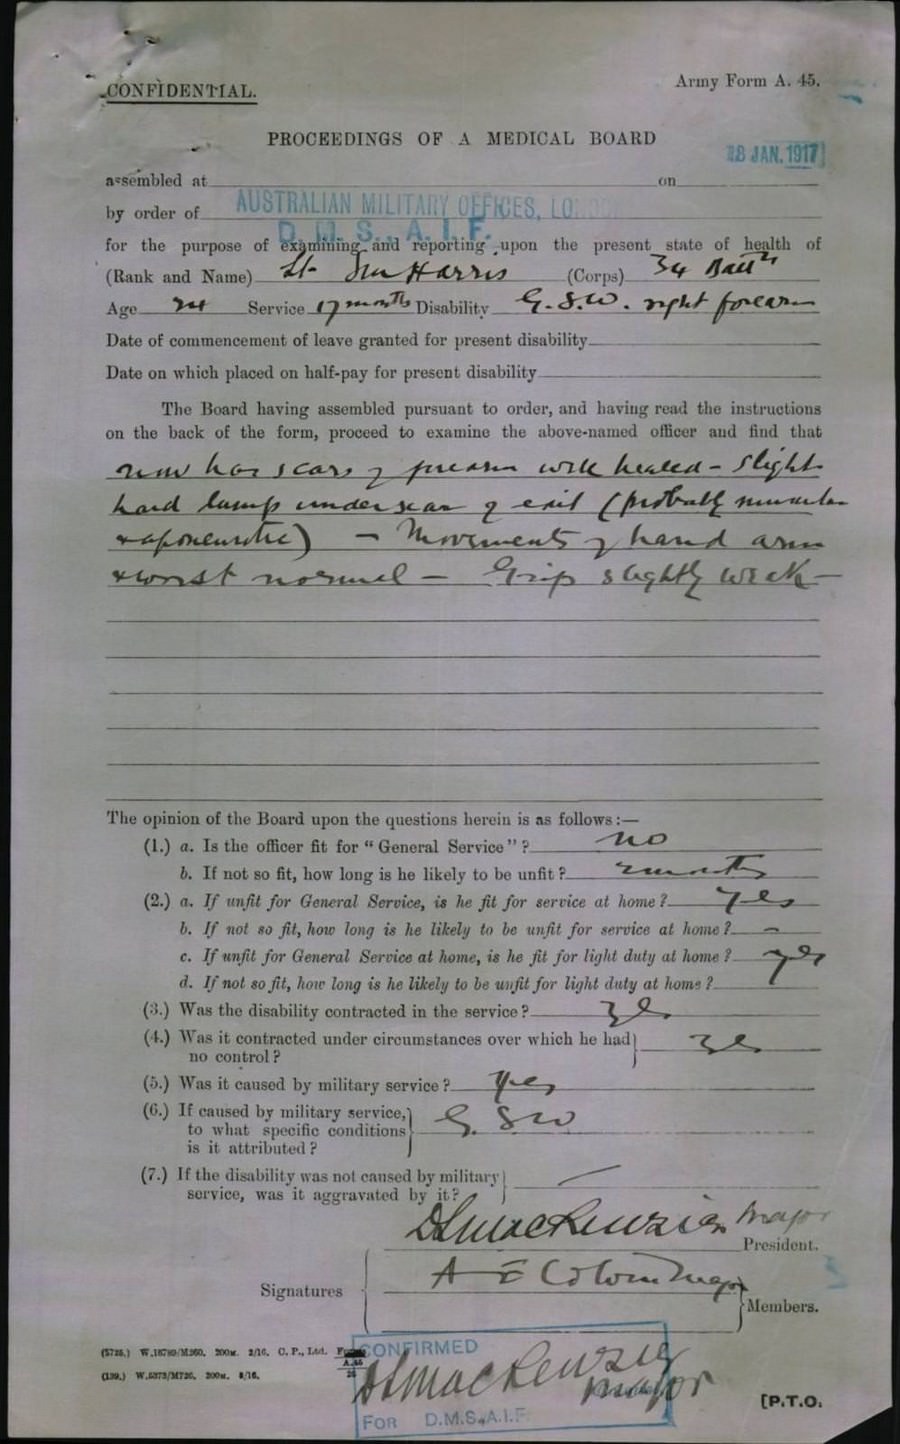 CONFIDENTIAL.
Army Form A. 45.
PROCEEDINGS OF A MEDICAL BOARD
18 JAN. 1917
assembled at on
by order of AUSTRALIAN MILITARY OFFICES, LONDON
D.M.S., A.I.F.
for the purpose of examining and reporting upon the present state of health of
(Rank and Name) Lt Harris (Corps) 34 Battn
Age 24 Service 17 months Disability G.S.W. right forearm
Date of commencement of leave granted for present disability
Date on which placed on half-pay for present disability
The Board having assembled pursuant to order, and having read the instructions
on the back of the form, proceed to examine the above-named officer and find that
now has scars of forearm well healed - slight
hard lump under scar of exit (probably muscular
+ aponeurotic) - Movements of hand arm
+ wrist normal - Grip slightly weak -
The opinion of the Board upon the questions herein is as follows :—
(1.) a. Is the officer fit for "General Service" ? no
b. If not so fit, how long is he likely to be unfit ? months
(2.) a. If unfit for General Service, is he fit for service at home ? yes
b. If not so fit, how long is he likely to be unfit for service at home ? -
c. If unfit for General Service at home, is he fit for light duty at home ? yes
d. If not so fit, how long is he likely to be unfit for light duty at home ?
(3.) Was the disability contracted in the service ? yes
(4.) Was it contracted under circumstances over which he had yes
no control ?
(5.) Was it caused by military service ? yes
(6.) If caused by military service, G. S W
to what specific conditions
is it attributed ?
(7.) If the disability was not caused by military
service, was it aggravated by it ?
MacKenzie Major
President.
Signatures
A E Major
Members.
(5725.) W.18789/M260. 200M. 2/16. C. P., Ltd. Form
A.45
(139.) W.5373/M726. 200M. 8/16.
CONFIRMED
MacKenzie
Major
FOR D.M.S., A.I.F.
[P.T.O.